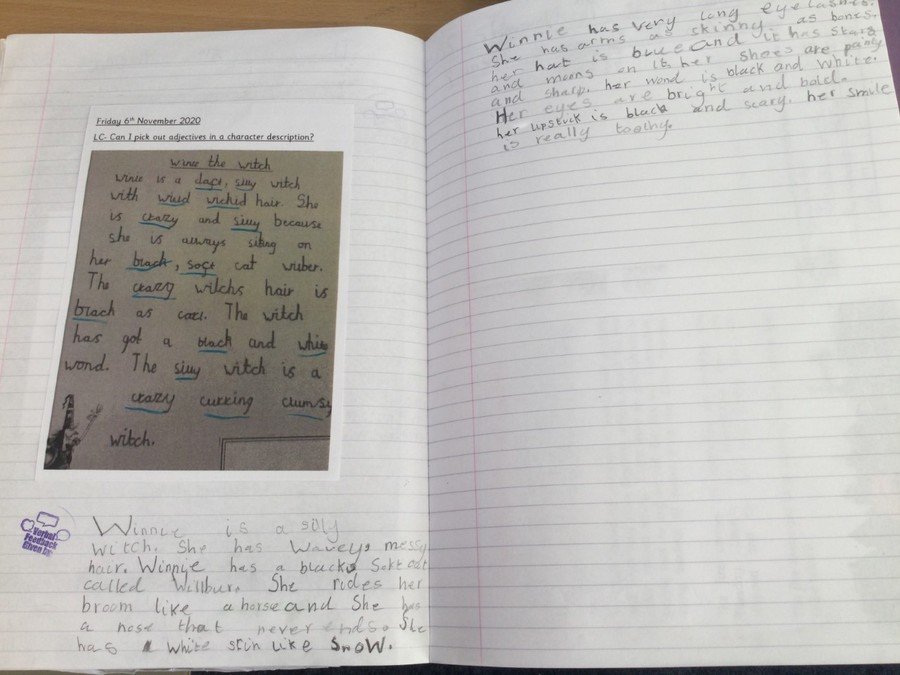 Friday 6th November 2020
LC- Can I pick out adjectives in a character description?
winie the witch
winie is a daft, silly witch
with wiud wichid hair. She
is crazy and silly because
she is always siting on
her black, soft cat wuber.
The crazy witchs hair is
black as cat. The witch
has got a black and white
wond. The silly witch is a
crazy curking clumsy
witch.
Verbal
Feedback
Given by:
Winnie is a silly
witch. She has wavey, messy
hair. Winnye has a black, Soft cat
called Willbur. She rides her
broom like a horse and She has
a nose that never ends. She
has a white skin like SnOW.
Winnie has very long eyelashes.
She has arms as skinny as bones.
her hat is blue and it has stars
and moons on it, her shoes are pointy
and sharp. her wond is black and white.
Her eyes are bright and bold.
her lipstick is black and scary. her smile
is really toothy.